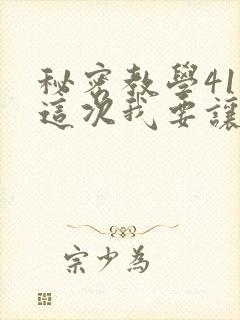 秘密教學41
這次我要讓
宗少為